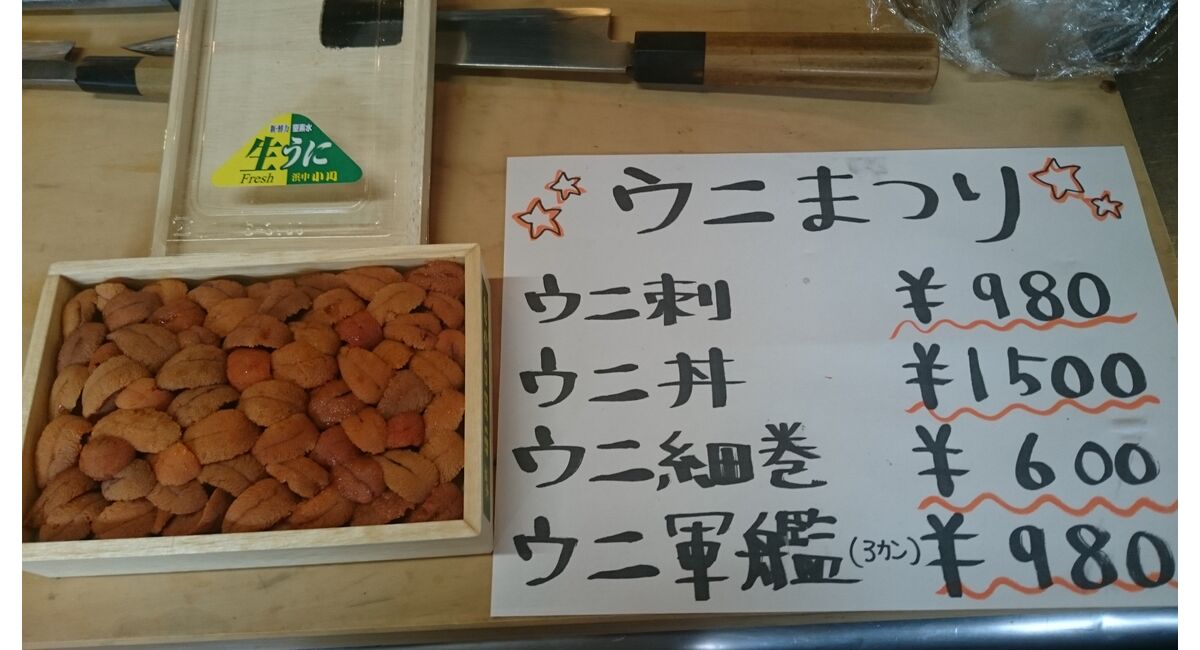 生うに
Fresh
浜中 小川
ウニまつり
ウニ刺 ¥980
ウニ丼 ¥1500
ウニ細巻 ¥600
ウニ軍艦(3カン) ¥980